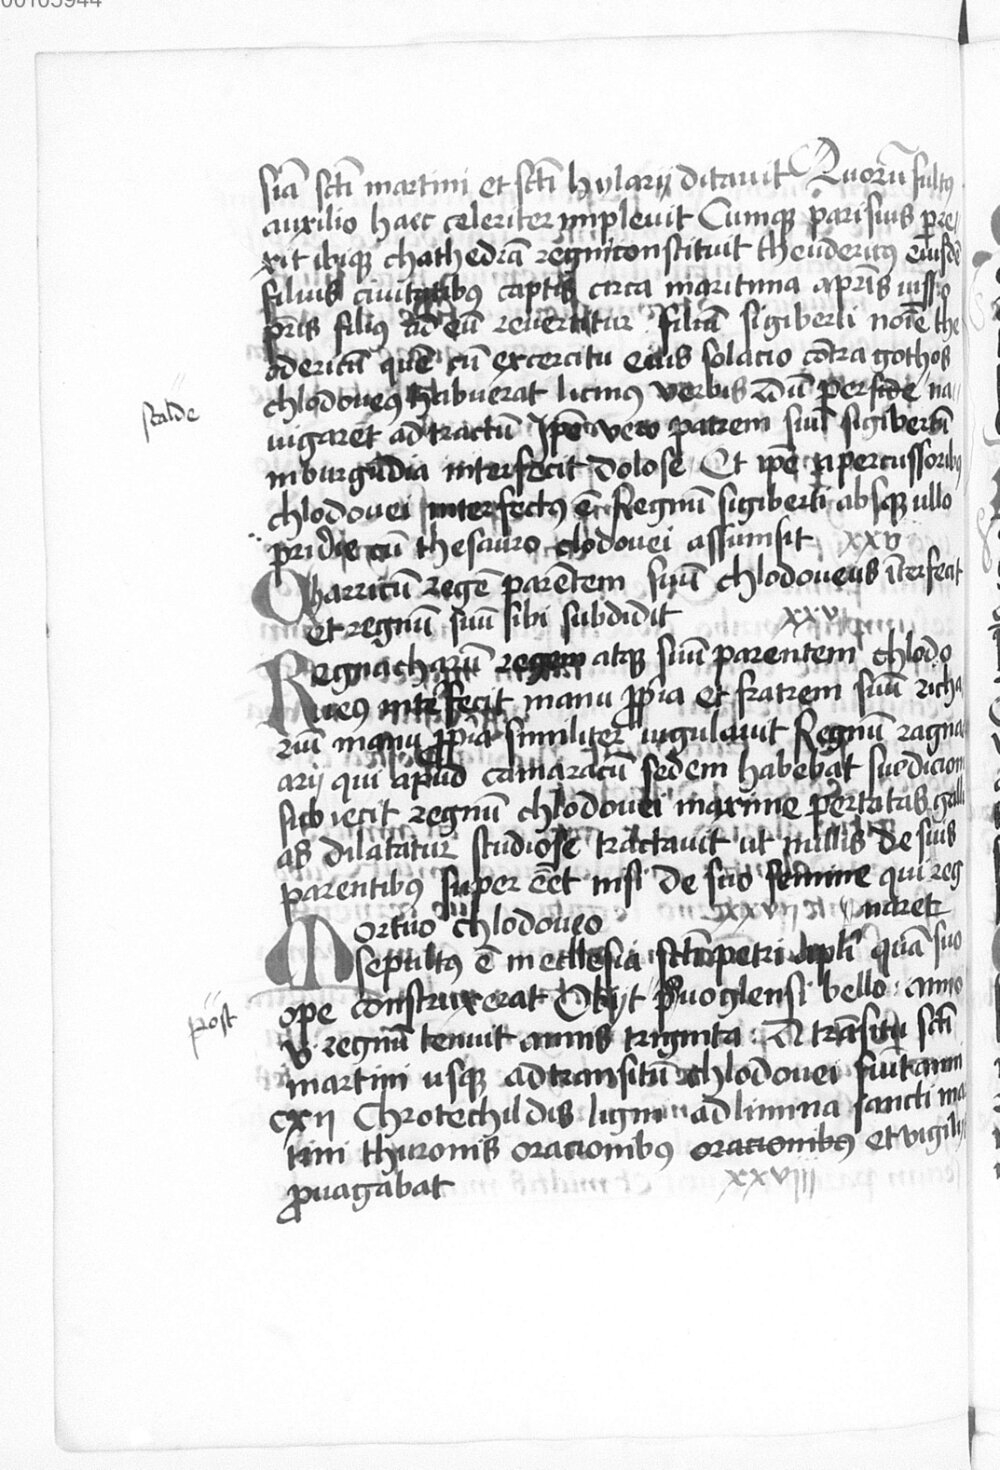 00103944
siā sctī martini et sctī hylarij ditavit Quorū fultꝯ
auxilio haec celeriter implevit Cumqꝫ parisius perre
xit ibiqꝫ chathedrā regni constituit theudericꝯ eiusdē
filius civitatibꝯ captis circa maritima a pr̄is iusso
pr̄is filiꝯ ad eū revertitur filiū sigiberti noīe the
odericū quē cū excercitu eius solacio cōtra gothos
chlodoveꝯ habuerat licinijs verbis dū per scalde na
scalde
uigaret ad tractū Ip̄e vero patrem suū sigibertū
in burgūdia interfecit dolose Et ip̄e a percussoribꝯ
chlodovei interfectꝯ ē Regnū sigiberti absqꝫ ullo
pridie cū thesauro clodovei assumsit xxv
Charricū regē parētem suū chlodoveus īterfecit
et regnū suū sibi subdidit xxvi
Regnacharū regem atqꝫ suū parentem chlodo
veꝯ interfecit manu ꝓpria et fratrem suū richa
riū manu ꝓpria similiter iugulavit Regnū ragna
arij qui apud camaracū sedem habebat suo dicioni
sub iecit regnū chlodovei maxime per totas galli
as dilatatur studiose tractavit ut nullis de suis
parentibꝯ super eēt nisi de suo semine qui reg
naret
Mortuo chlodoveo xxvij
sepultꝯ ē in ecclesia sctī petri apl̄i quā suo
ope construxerat Obijt post voglensi bello anno
post
v regnū tenuit annis triginta A trāsitu sctī
martini usqꝫ ad transitū chlodovei fiūt anni
cxij Chrotechildis ligni ad limina sancti mar
tini thuronis oracionibꝯ oracionibꝯ et vigilijs
ꝓvagabat xxviij